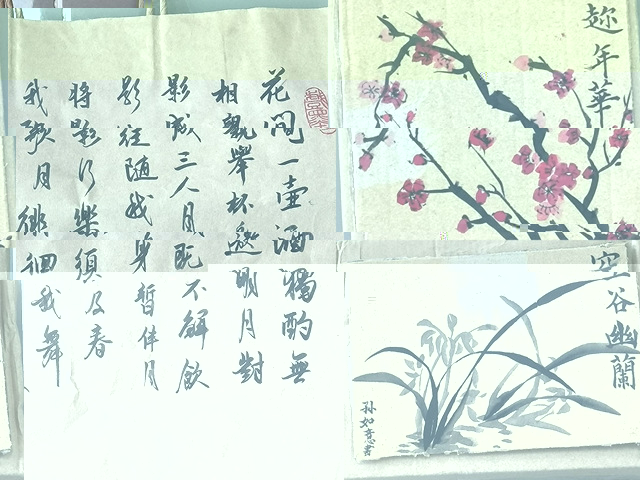 花間一壺酒獨酌無
相親舉杯邀明月對
影成三人月既不解飲
影徒隨我身暫伴月
將影行樂須及春
我歌月徘徊我舞
趂年華
空谷幽蘭
孙如意書